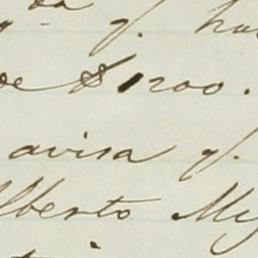 da
q. ha
de $1200.
avisa q.
Alberto My